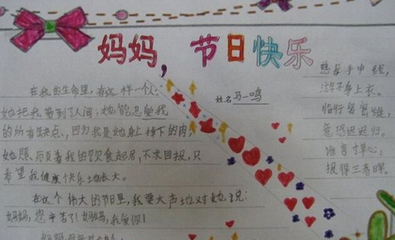 妈妈，节日快乐
姓名 马一鸣
在我的生命里，有这样一个人：
她把我带到了人间；她能忍受我
的所有缺点，因为我是她身上掉下的肉；
她照负着我的饮食起居，不求回报，只
希望我健康快乐地成长。
在这个伟大的节日里，我要大声地对她说：
妈妈，您辛苦了！妈妈，我爱你！
慈母手中线，
游子身上衣。
临行密密缝，
意恐迟迟归。
谁言寸草心，
报得三春晖。